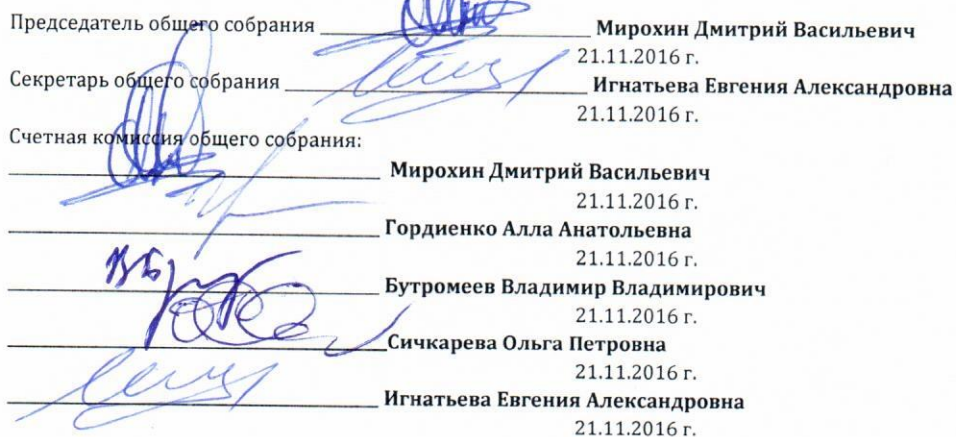 Председатель общего собрания ____________________ Мирохин Дмитрий Васильевич
21.11.2016 г.
Секретарь общего собрания ____________________ Игнатьева Евгения Александровна
21.11.2016 г.
Счетная комиссия общего собрания:
____________________ Мирохин Дмитрий Васильевич
21.11.2016 г.
____________________ Гордиенко Алла Анатольевна
21.11.2016 г.
____________________ Бутромеев Владимир Владимирович
21.11.2016 г.
____________________ Сичкарева Ольга Петровна
21.11.2016 г.
____________________ Игнатьева Евгения Александровна
21.11.2016 г.